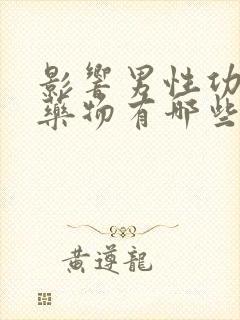 影響男性功
藥物有哪些
黃遵龍